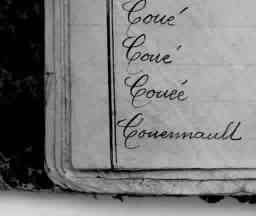 Coué
Coué
Couée
Couennault